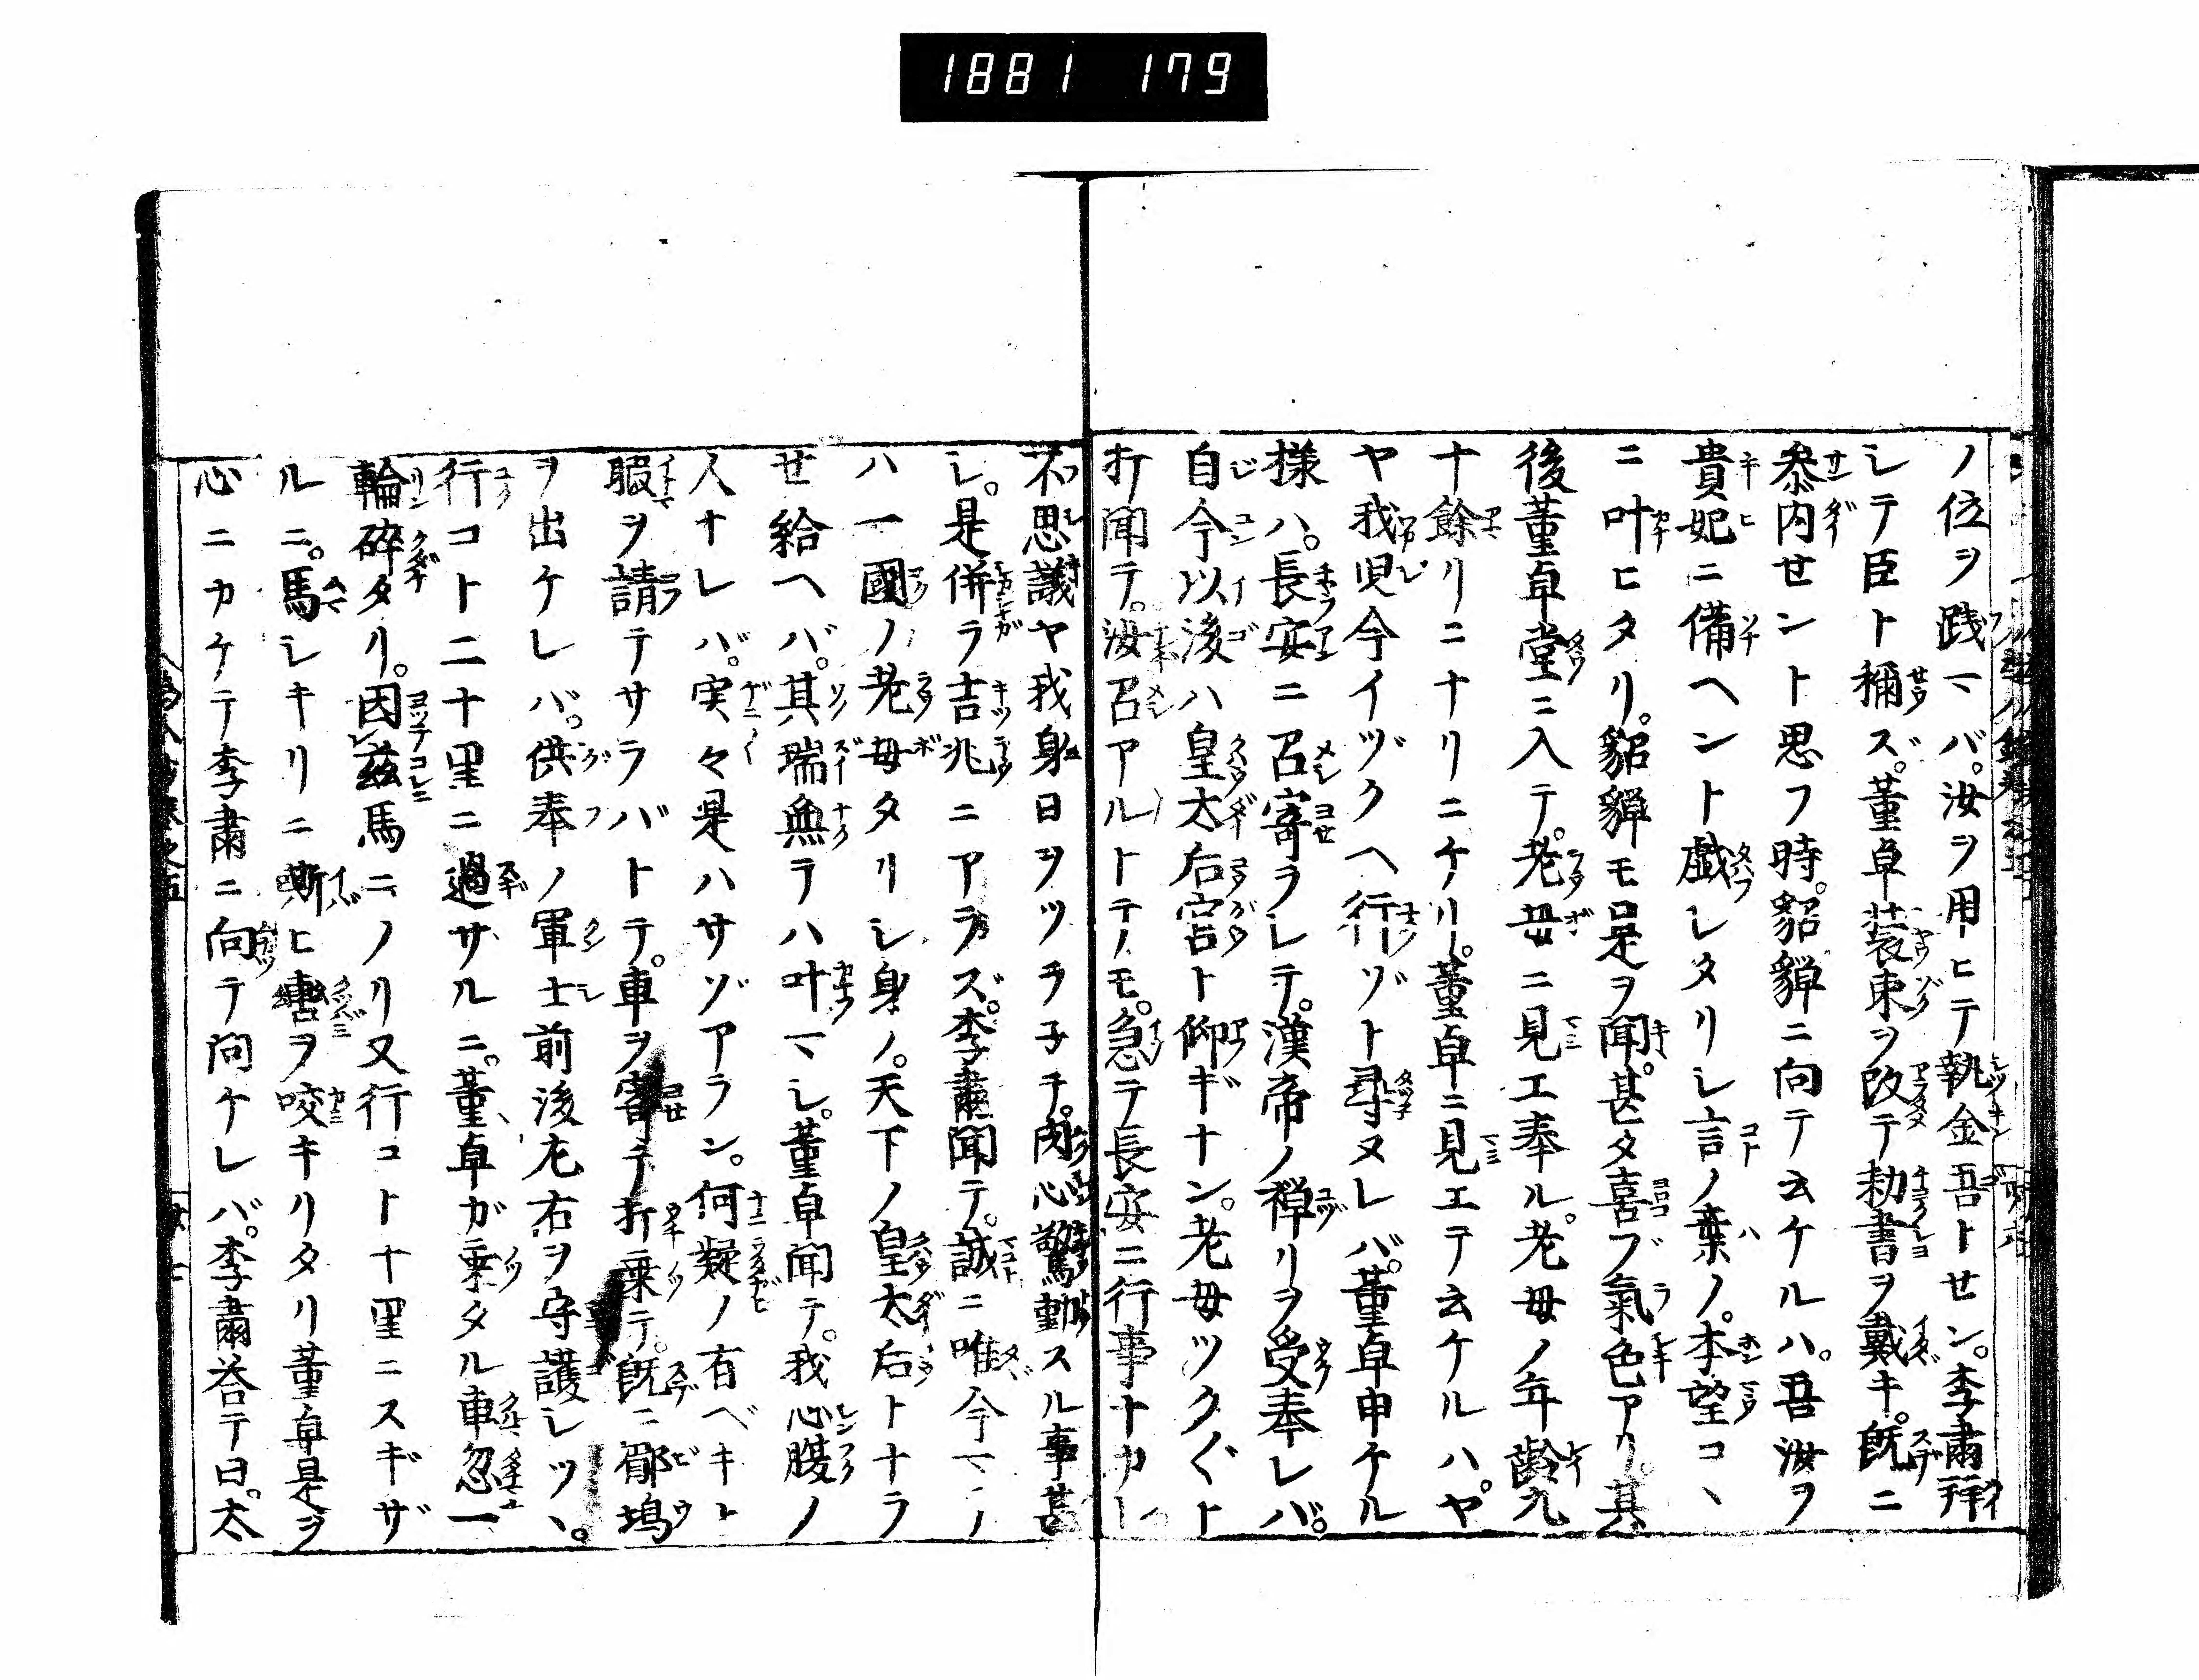 1881 179
ノ位ヲ践マバ。汝ヲ用ヒテ執金吾トセン。李肅拜
シテ臣ト稱ス。董卓装束ヲ改テ勅書ヲ戴キ。既ニ
叅内セント思フ時。貂蟬ニ向テ云ケルハ。吾汝ヲ
貴妃ニ備ヘント戯レタリシ言ノ葉ノ。本望コヽ
ニ叶ヒタリ。貂蟬モ是ヲ聞。甚タ喜ブ氣色アリ。其
後董卓堂ニ入テ。老母ニ見エ奉ル。老母ノ年齢九
十餘リニナリニケリ。董卓ニ見エテ云ケルハ。ヤ
ヤ我児今イヅクヘ行ゾト尋ヌレバ。董卓申ケル
様ハ。長安ニ召寄ラレテ。漢帝ノ禅リヲ受奉レバ。
自今以後ハ皇太后宮ト仰ギナン。老母ツク〲ト
打聞テ。汝召アルトテノモ。急テ長安ニ行事ナカレ
不思議ヤ我身日ヲツヲ子チ。肉心驚動スル事甚
シ。是併ラ吉兆ニアラズ。李肅聞テ。誠ニ唯今マヽノ
ハ一國ノ老母タリシ身ノ。天下ノ皇太后トナラ
せ給ヘバ。其瑞無テハ叶マシ。董卓聞テ。我心腹ノ
人ナレバ。実々是ハサゾアラン。何疑ノ有ベキト
暇ヲ請テサラバトテ。車ヲ寄テ打乗テ。既ニ郿塢
ヲ出ケレバ。供奉ノ軍士前後左右ヲ守護シツヽ。
行コト二十里ニ過サルニ。董卓ガ乗タル車忽一
輪碎タリ。因茲馬ニノリ又行コト十里ニスギザ
ルニ。馬シキリニ嘶ヒ轡ヲ咬キリタリ董卓是ヲ
心ニカケテ李肅ニ向テ問ケレバ。李肅答テ曰。太